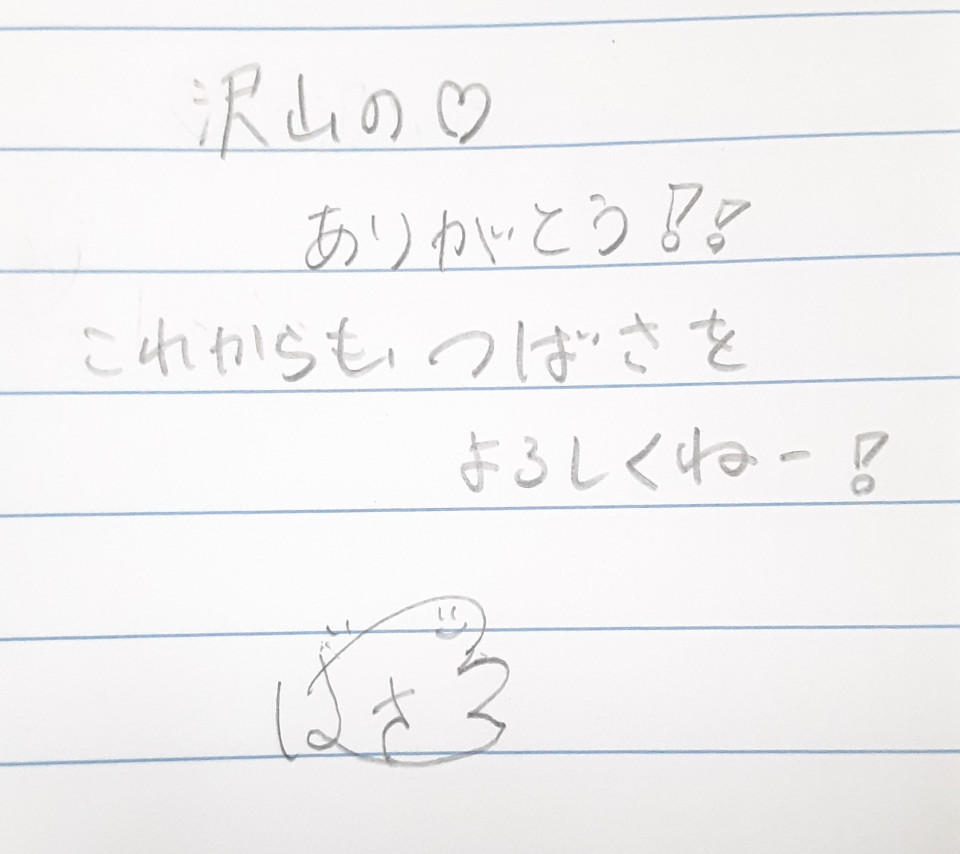 沢山の♡
ありがとう!!
これからも、つばさを
よろしくねー!
ばさ